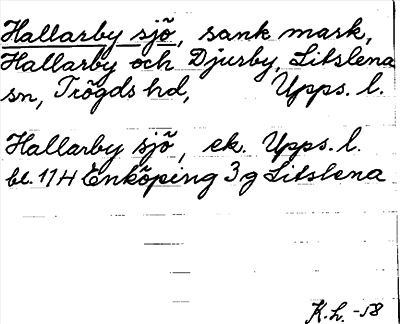 Hallarby sjö, sank mark,
Hallarby och Djurby, Litslena
sn, Trögds hd, Upps. l.
Hallarby sjö, ek. Upps. l.
bl. 114 Enköping 3g Litslena
K.h. -58